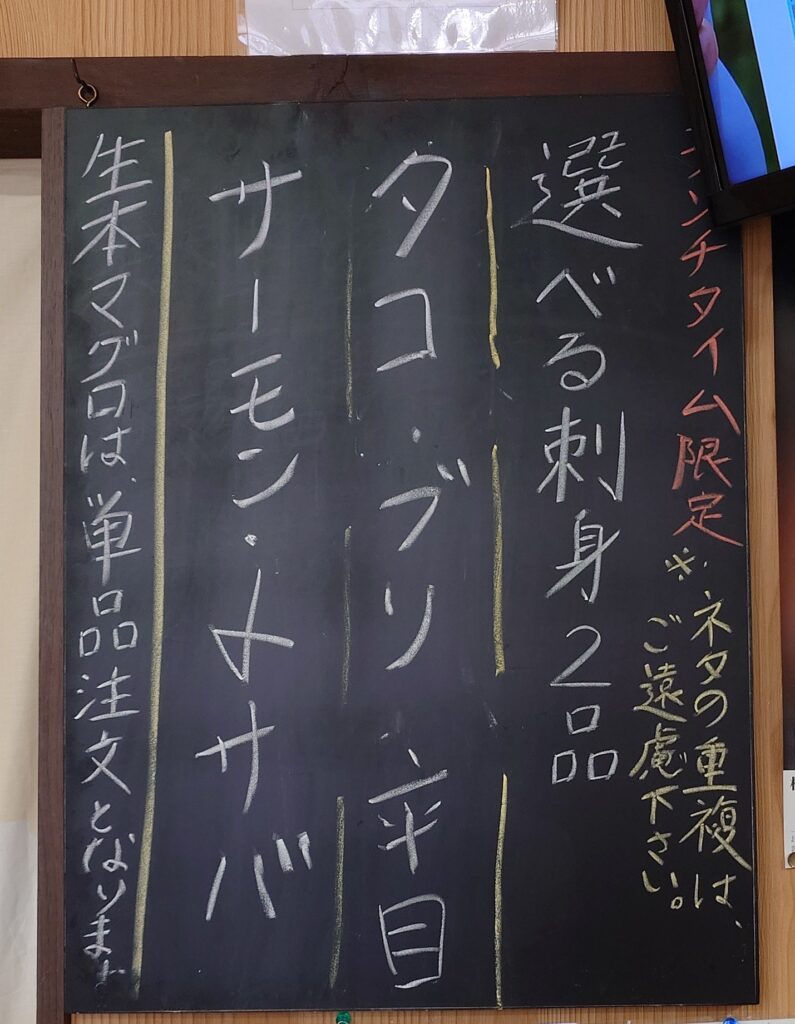 ランチタイム限定
※ネタの重複は、
ご遠慮下さい。
選べる刺身2品
タコ・ブリ・平目
サーモン・〆サバ
生本マグロは、単品注文となります